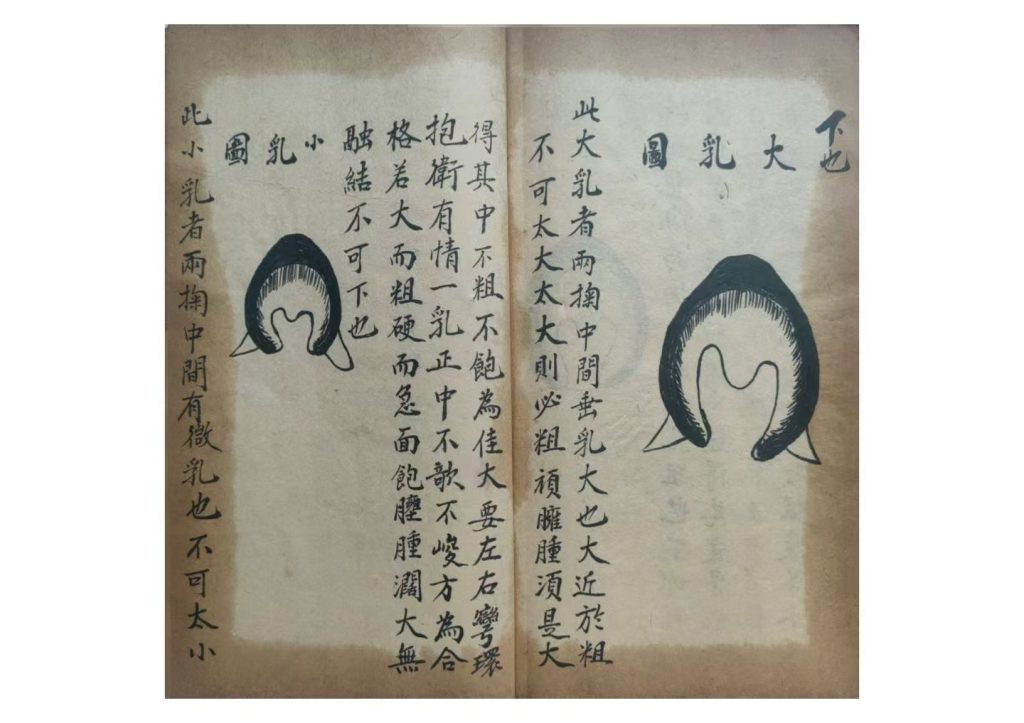 下也
大乳圖
此大乳者兩掬中間垂乳大也大近於粗
不可太大太大則必粗頑臃腫須是大
得其中不粗不飽為佳大要左右彎環
抱衛有情一乳正中不歌不峻方為合
格若大而粗硬而急面飽臃腫濶大無
融結不可下也
小乳圖
此小乳者兩掬中間有微乳也不可太小